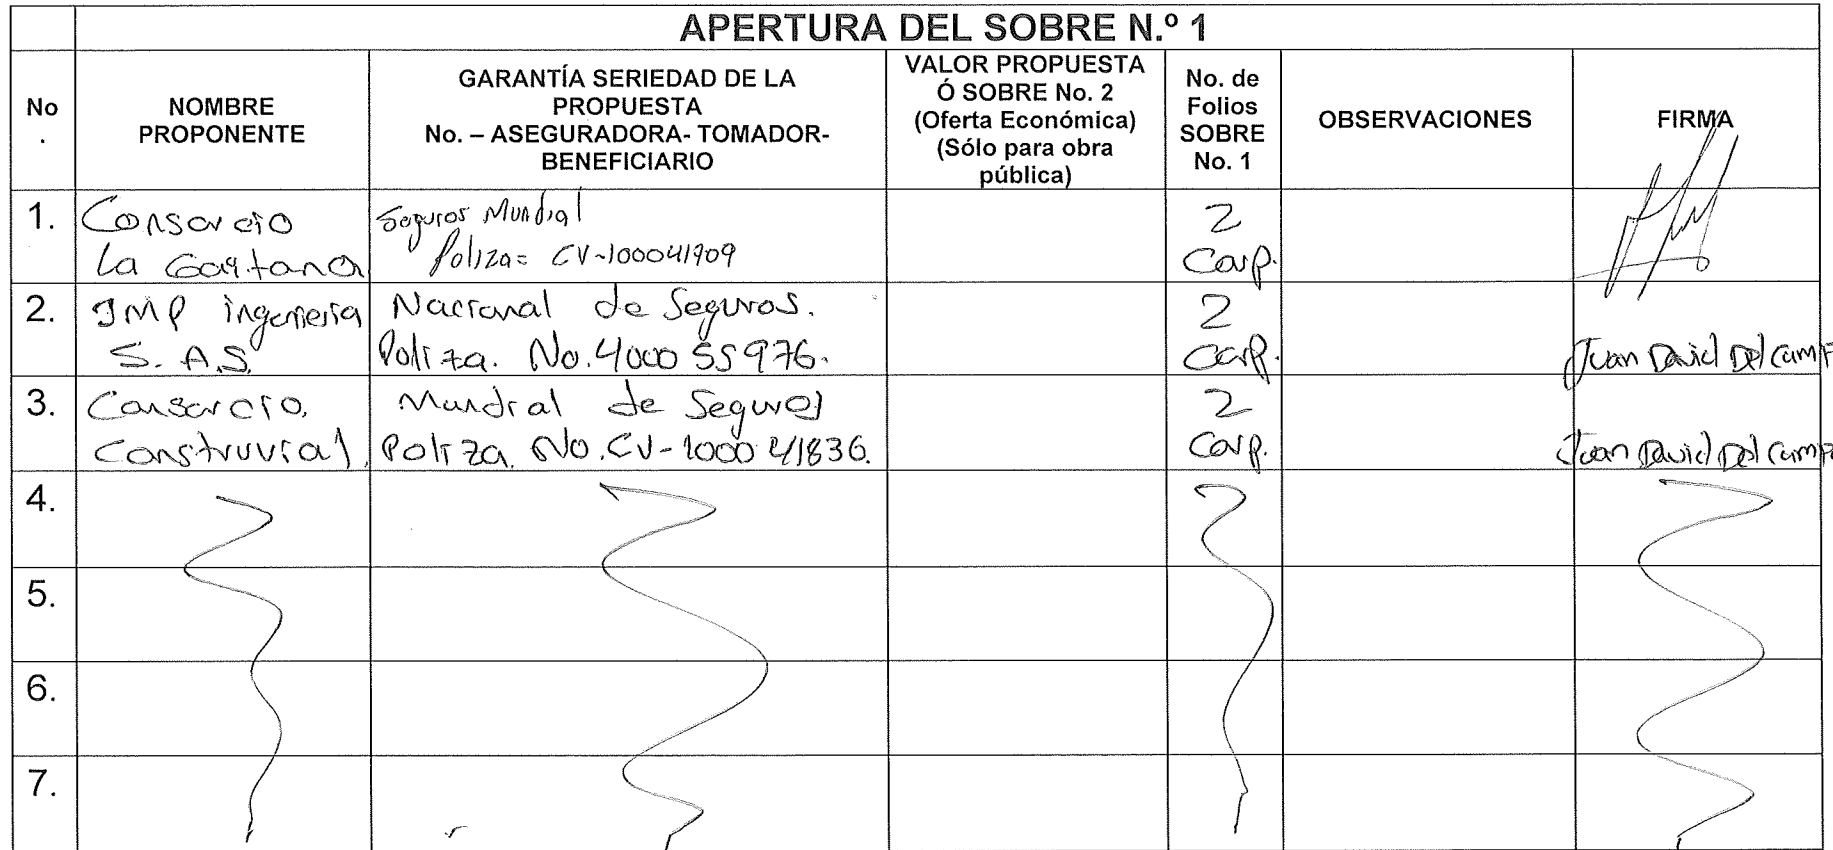 APERTURA DEL SOBRE N.º 1
No
.
NOMBRE
PROPONENTE
GARANTÍA SERIEDAD DE LA
PROPUESTA
No. – ASEGURADORA- TOMADOR-
BENEFICIARIO
VALOR PROPUESTA
Ó SOBRE No. 2
(Oferta Económica)
(Sólo para obra
pública)
No. de
Folios
SOBRE
No. 1
OBSERVACIONES
FIRMA
1.
Consorcio
La Gaitana
Seguros Mundial
Poliza= CV-100041909
2
Carp.
2.
JMP ingenieria
S.A.S.
Nacional de Seguros.
Poliza. No. 400055976.
2
Carp.
Juan David Del Camp
3.
Consorcio.
Construvial.
Mundial de Seguros
Poliza. No. CV-100041836.
2
Carp.
Juan David Del Camp
4.
5.
6.
7.